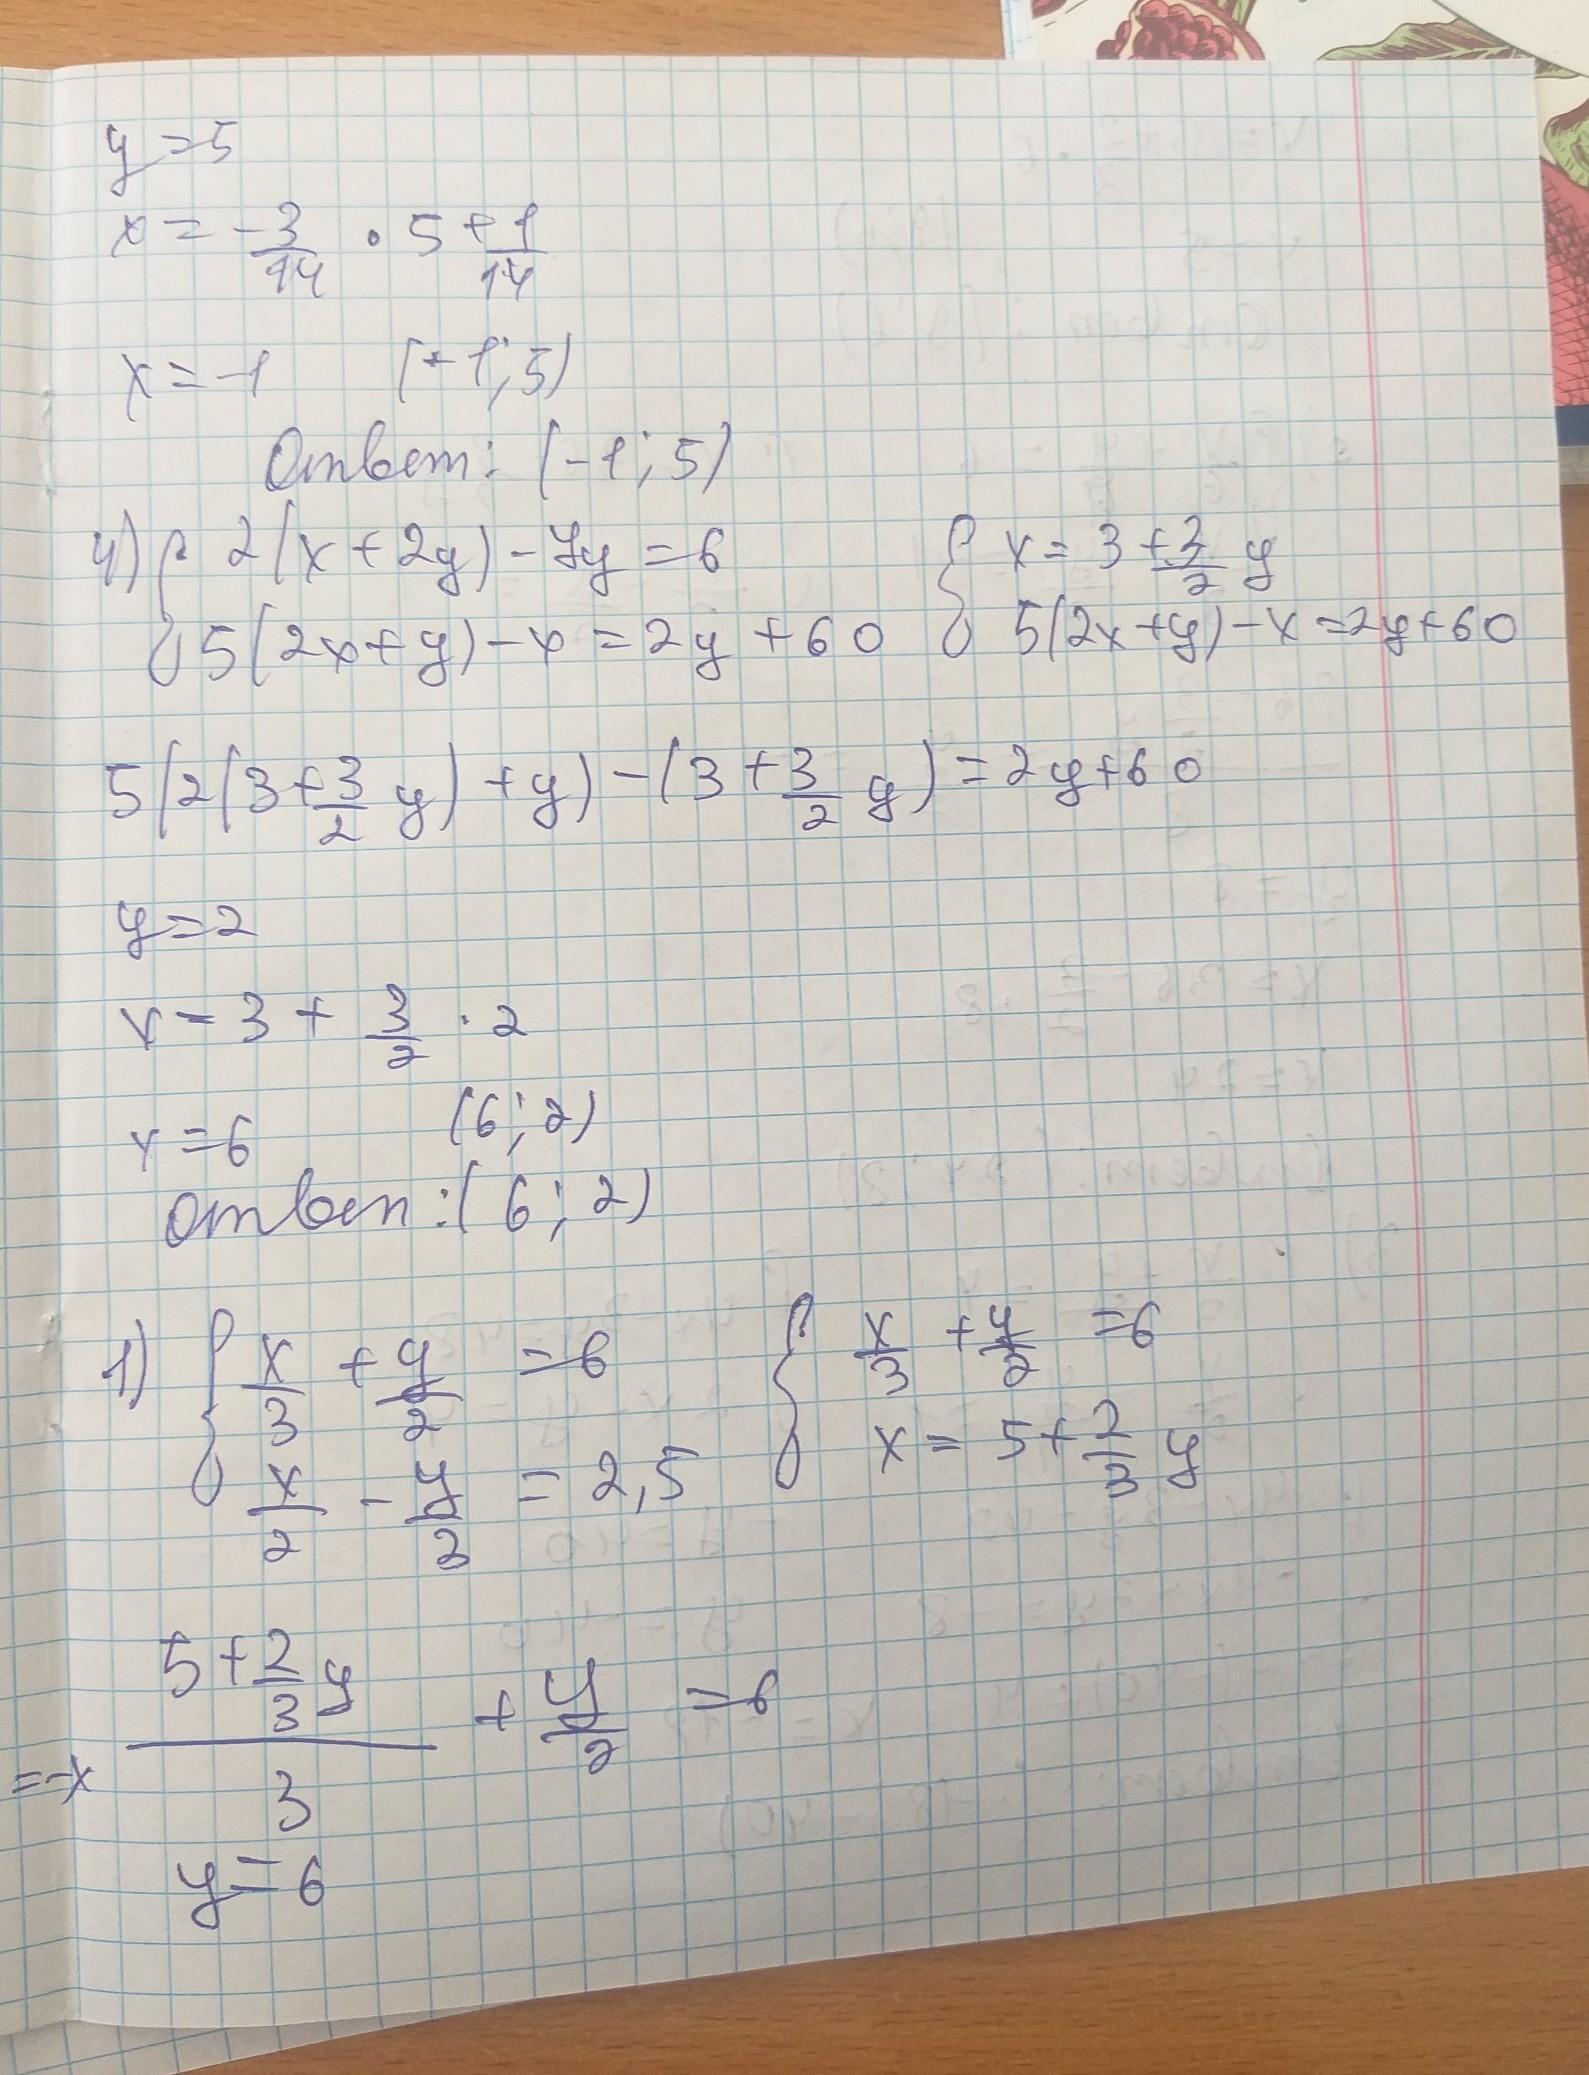 y = 5
x = -3/14 · 5 + 1/14
x = -1 (-1; 5)
Ответ: (-1; 5)
4) { 2(x + 2y) - 7y = 6 { x = 3 + 3/2 y
5(2x + y) - x = 2y + 60 5(2x + y) - x = 2y + 60
5(2(3 + 3/2 y) + y) - (3 + 3/2 y) = 2y + 60
y = 2
x = 3 + 3/2 · 2
x = 6 (6; 2)
Ответ: (6; 2)
1) { x/3 + y/2 = 6 { x/3 + y/2 = 6
x/2 - y/3 = 2,5 x = 5 + 2/3 y
(5 + 2/3 y)/3 + y/2 = 6
y = 6